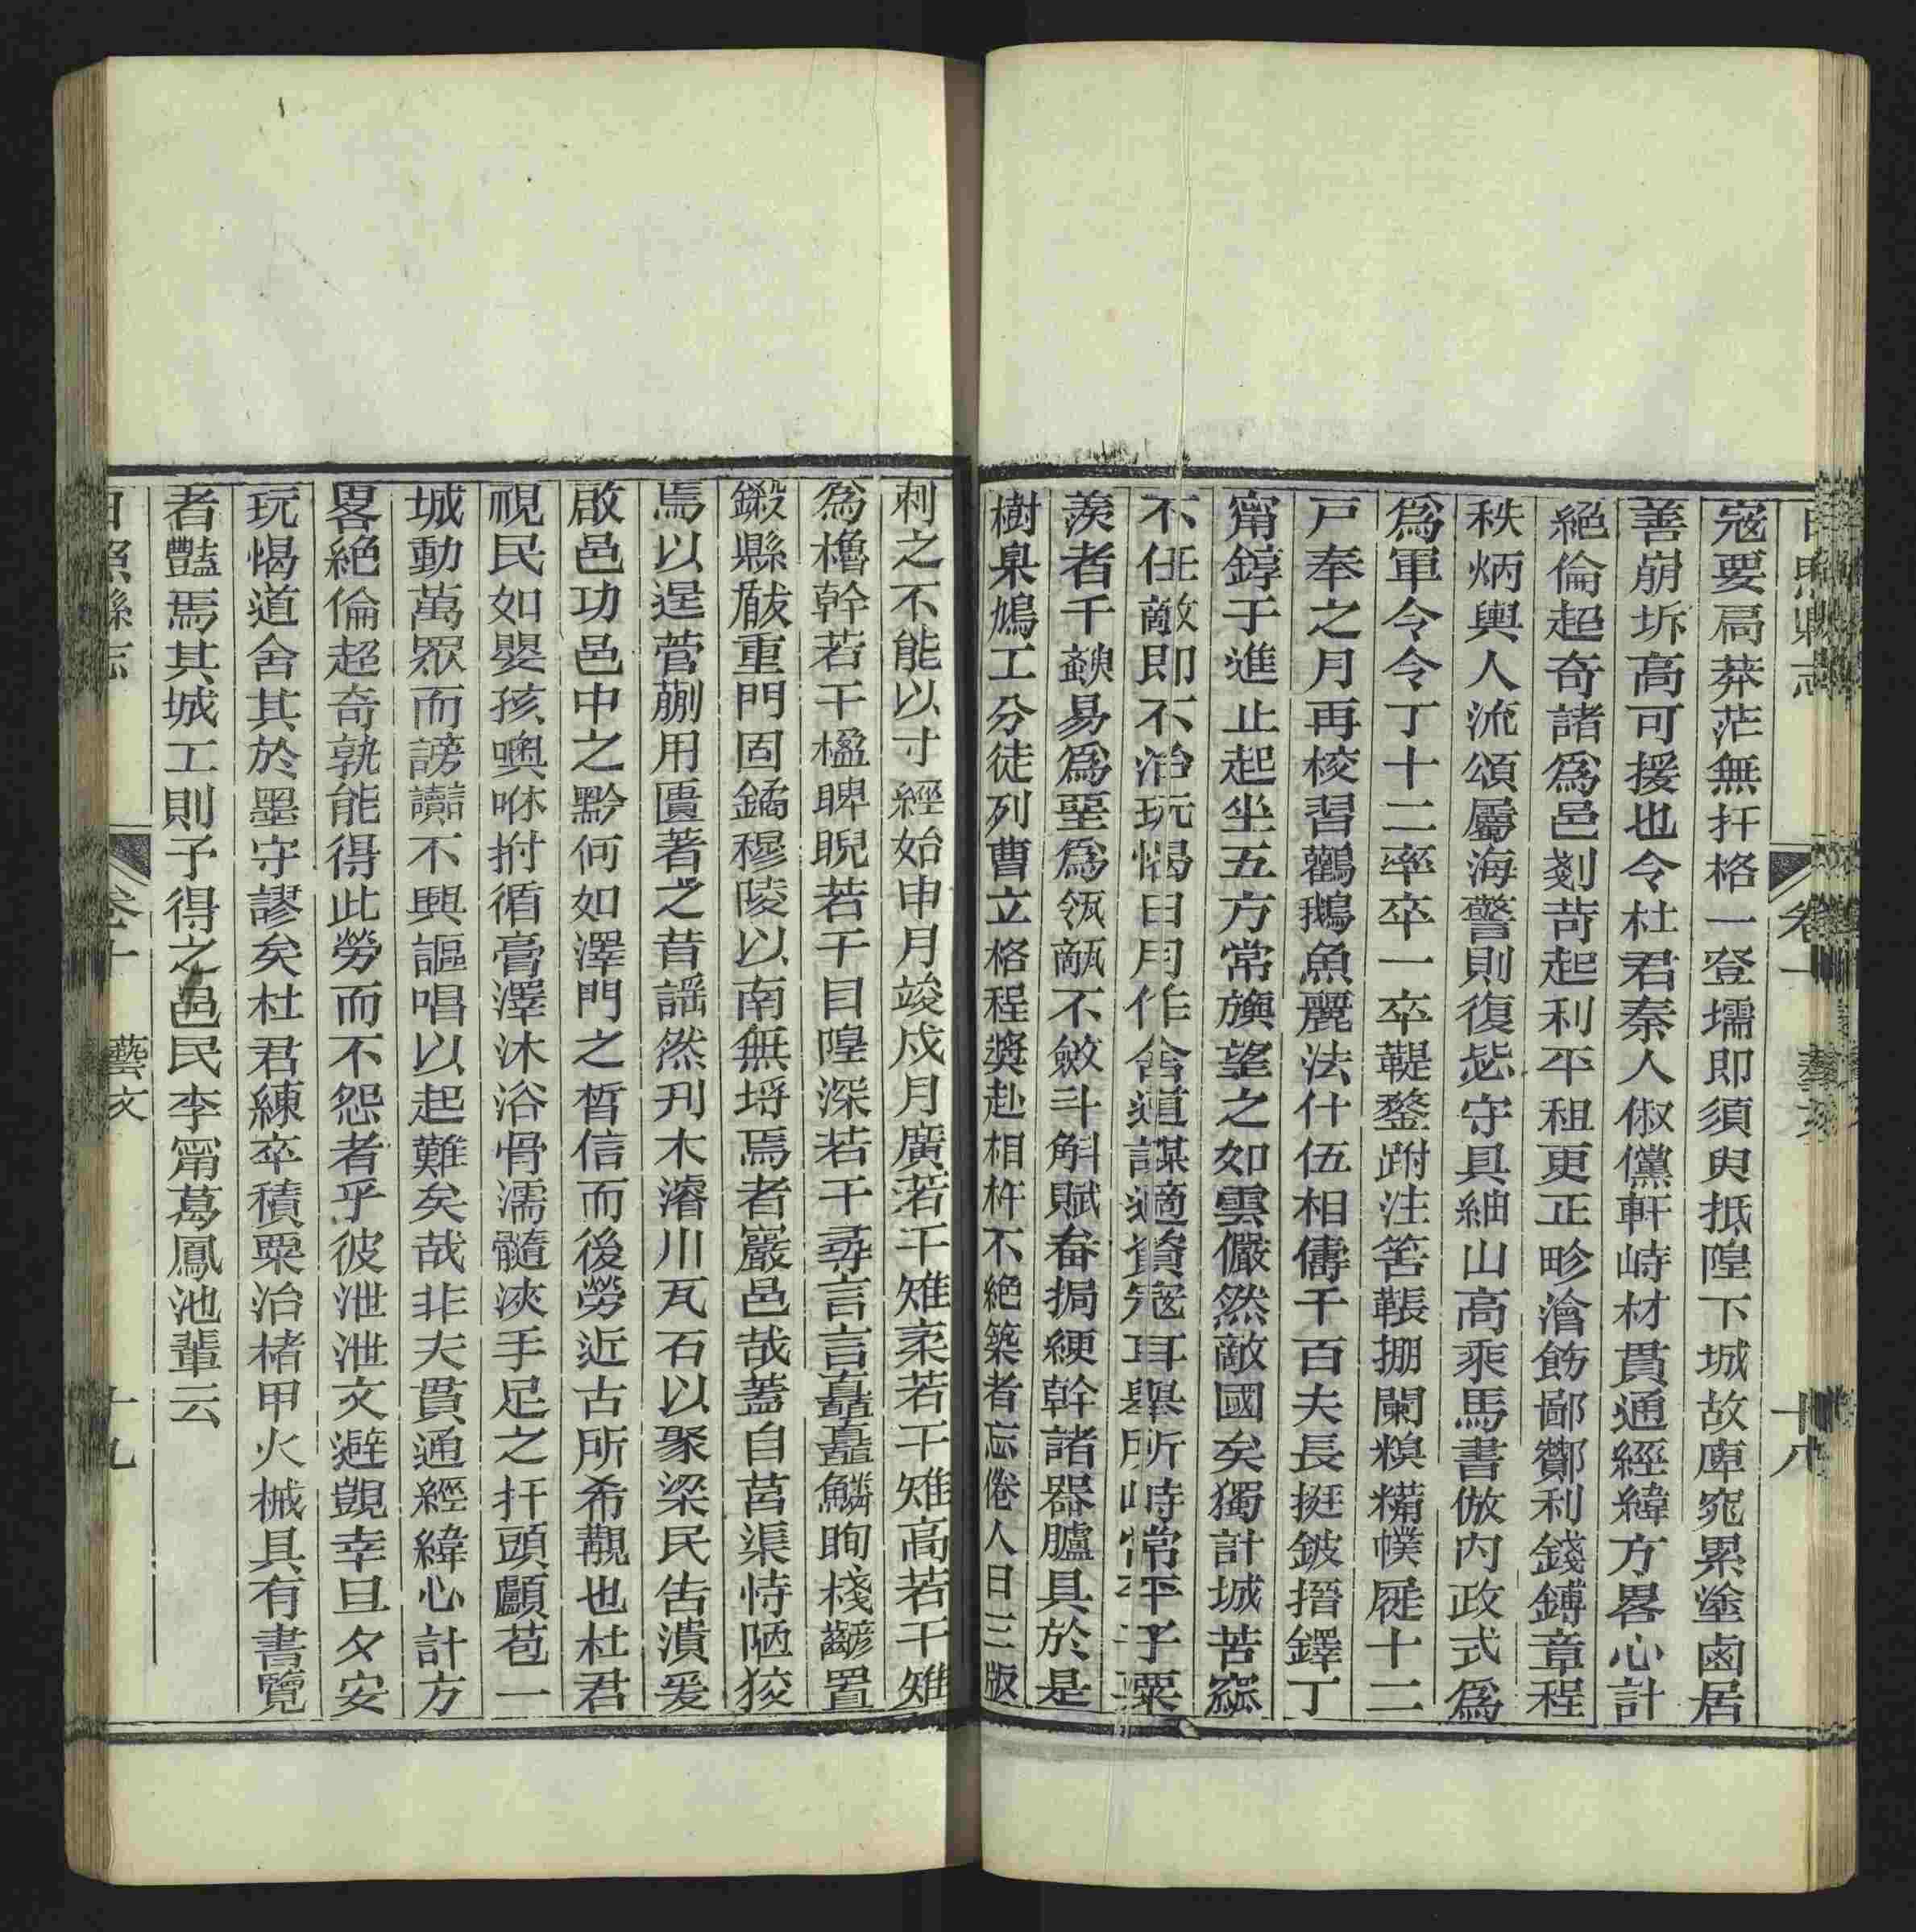 日照縣志 卷十 藝文 十八
寇要扃莽茫無扞格一登壖即須臾抵隍下城故庳窕累塗鹵居
善崩坼高可援也令杜君秦人俶儻軒峙材貫通經緯方畧心計
絕倫超奇諸爲邑剗苛起利平租更正畛澮飭鄙酇利錢鎛章程
秩炳輿人流頌屬海警則復毖守具紬山高乘馬書倣內政式爲
爲軍令令丁十二率卒一卒鞮鍪跗注箬韔掤闌糗糒幞屣十二
戸奉之月再校習鸛鵝魚麗法什伍相儔千百夫長挺鈹搢鐸丁
甯錞于進止起坐五方常旟望之如雲儼然敵國矣獨計城苦窳
不任敵即不治玩愒日月作舍道謀適資寇耳舉所峙常平子粟
羨者千䤬易爲堊爲瓴甋不斂斗斛賦畚挶綆幹諸器臚具於是
樹臬鳩工分徒列曹立格程獎赴相杵不絕築者忘倦人日三版
刺之不能以寸經始申月竣戍月廣若干雉袤若干雉高若干雉
爲櫓幹若干楹睥睨若干目隍深若干尋言言矗矗鱗眴棧齴置
鍛縣瞂重門固鐍穆陵以南無埒焉者巖邑哉蓋自莒渠恃陋狡
焉以逞菅蒯用匱著之昔謡然刋木濬川瓦石以聚梁民告潰爰
啟邑功邑中之黔何如澤門之晳信而後勞近古所希覯也杜君
視民如嬰孩噢咻拊循膏澤沐浴骨濡髓浹手足之扞頭顱苞一
城動萬眾而謗讟不興謳唱以起難矣哉非夫貫通經緯心計方
畧絕倫超奇孰能得此勞而不怨者乎彼泄泄文避覬幸旦夕安
玩愒道舍其於墨守謬矣杜君練卒積粟治楮甲火械具有書覽
者豔焉其城工則予得之邑民李甯葛鳳池輩云
日照縣志 卷十 藝文 十九